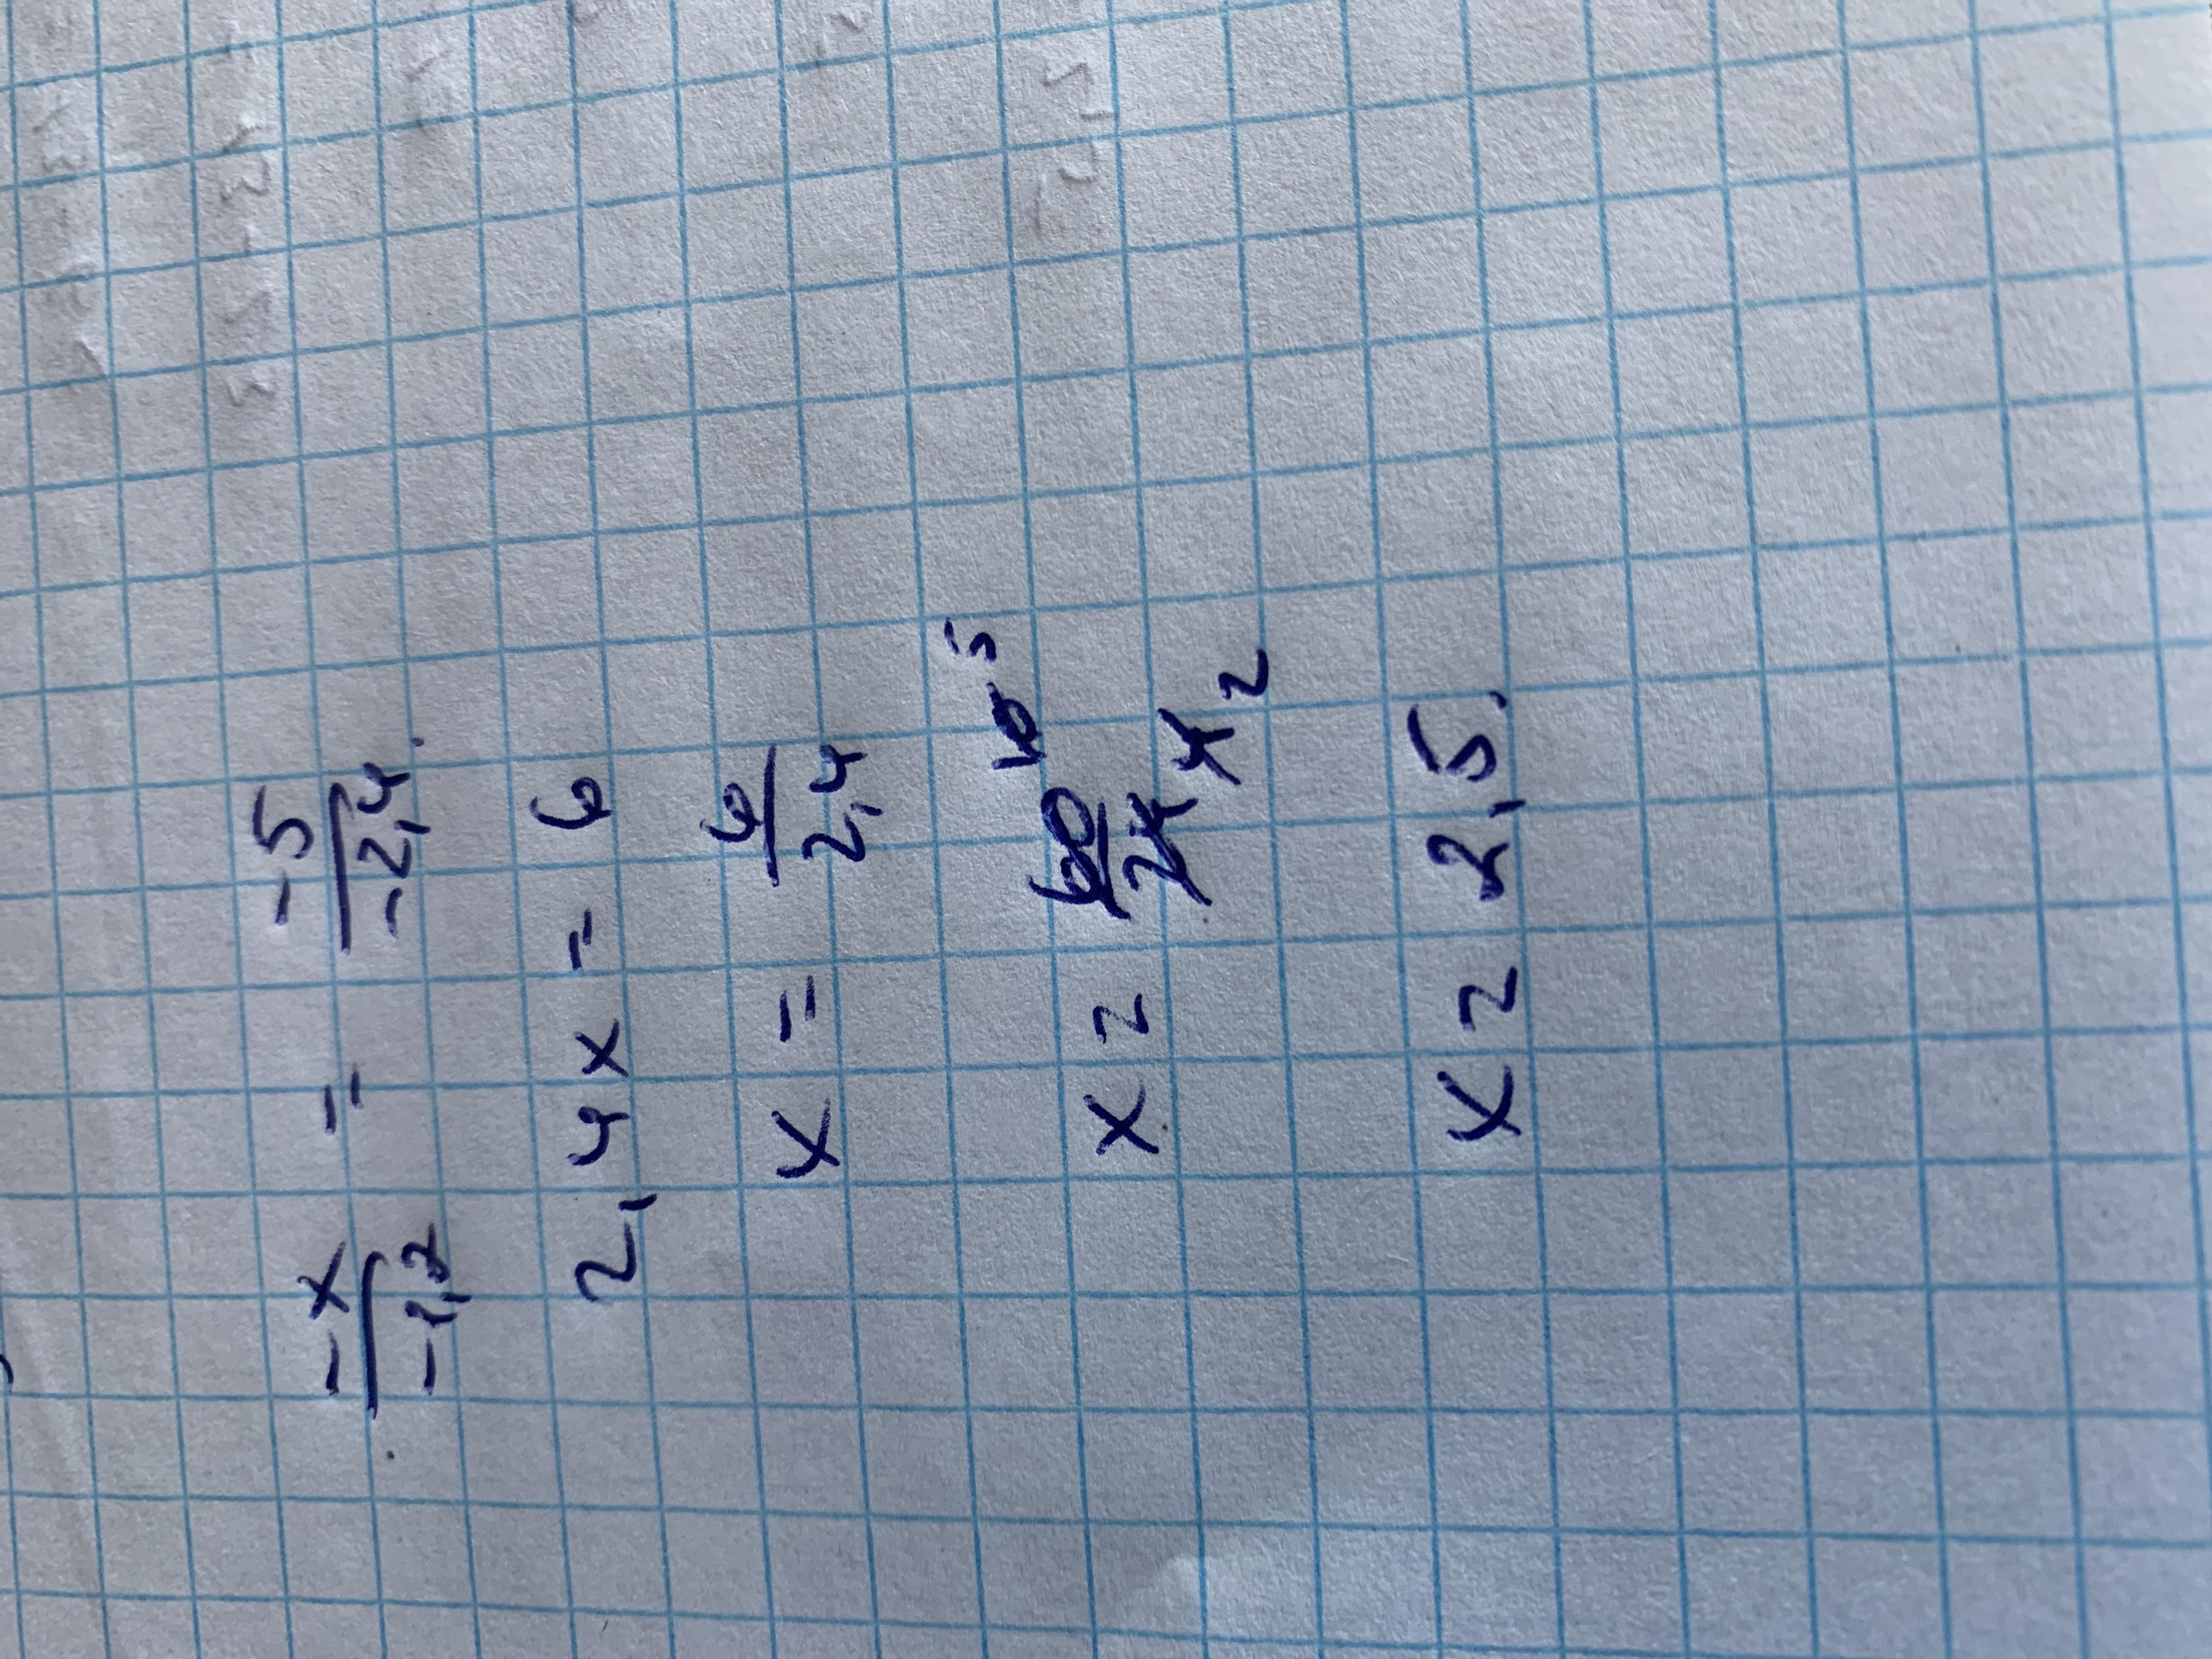 -x/-1,2 = -5/-2,4
2,4x = 6
x = 6/2,4
x = 60/24 10/4 5/2
x = 2,5.